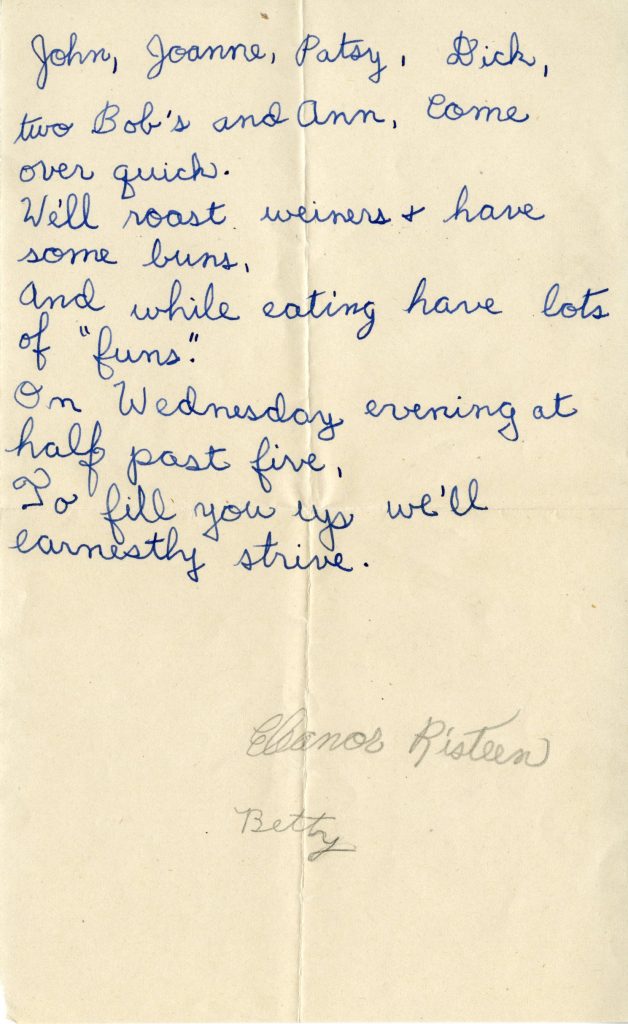 John, Joanne, Patsy, Dick,
two Bob's and Ann, Come
over quick.
We'll roast weiners & have
some buns,
And while eating have lots
of "funs".
On Wednesday evening at
half past five,
To fill you up we'll
earnestly strive.
Eleanor Risteen
Betty